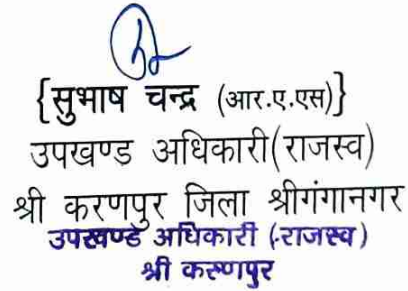 {सुभाष चन्द्र (आर.ए.एस)}
उपखण्ड अधिकारी(राजस्व)
श्री करणपुर जिला श्रीगंगानगर
उपखण्ड अधिकारी (राजस्व)
श्री करणपुर